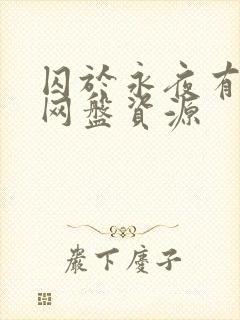 囚於永夜有
网盤資源
嚴下慶子